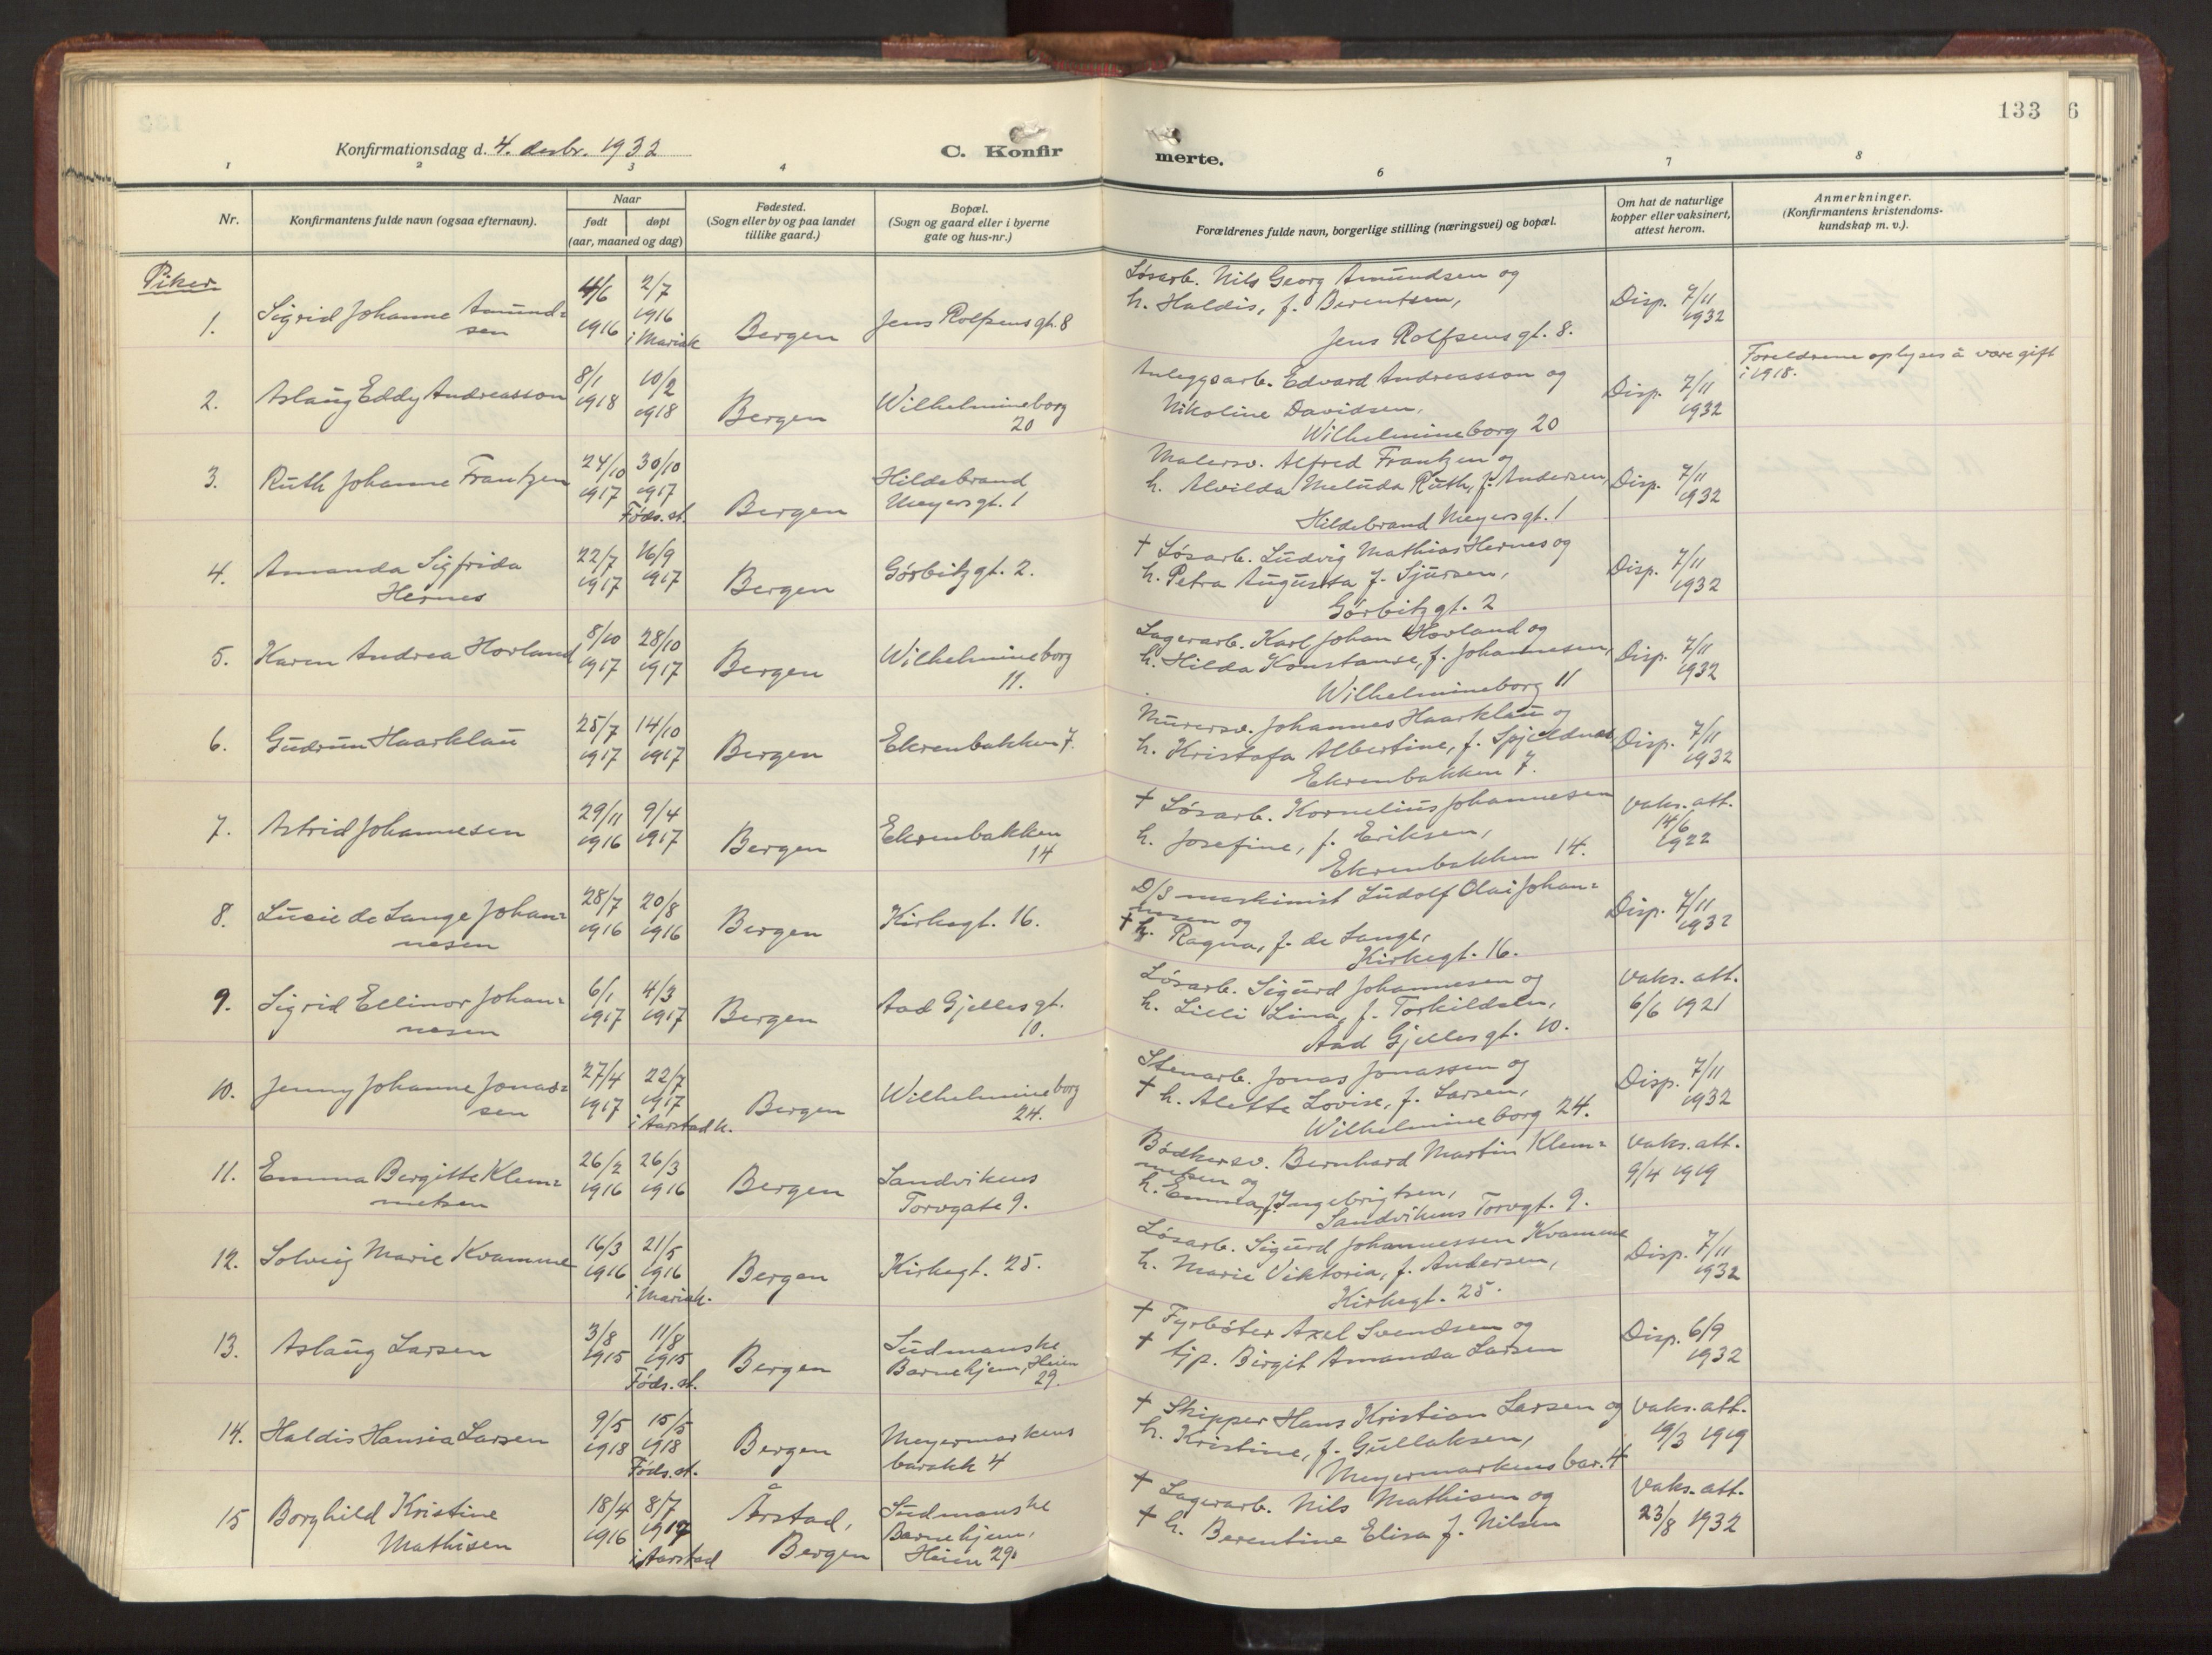 133
6
Konfirmationsdag d. 4. desbr. 1932
C. Konfir
merte.
1
2
3
4
6
7
8
Nr.
Konfirmantens fulde navn (ogsaa efternavn).
Naar
født
døpt
(aar, maaned og dag)
Fødested.
(Sogn eller by og paa landet
tillike gaard.)
Bopæl.
(Sogn og gaard eller i byerne
gate og hus-nr.)
Forældrenes fulde navn, borgerlige stilling (næringsvei) og bopæl.
Om hat de naturlige
kopper eller vaksinert,
attest herom.
Anmerkninger.
(Konfirmantens kristendoms-
kundskap m. v.).
Piker
1.
Sigrid Johanne Amund=
sen
4/6
1916
2/7
1916
i Mariak
Bergen
Jens Rolfsensgt. 8
Løsarb. Nils Georg Amundsen og
h. Haldis, f. Berentsen,
Jens Rolfsensgt. 8.
Disp. 7/11
1932
2.
Aslaug Eddy Andreasson
8/1
1918
10/2
1918
Bergen
Wilhelmineborg
20
Anleggsarb. Edvard Andreasson og
Nikoline Davidsen,
Wilhelmineborg 20
Disp. 7/11
1932
Foreldrene oplyses å være gift
i 1918.
3.
Ruth Johanne Frantzen
24/10
1917
30/10
1917
Føds.st.
Bergen
Hildebrand
Meyersgt. 1
Malersv. Alfred Frantzen og
h. Alvilda Meluda Ruth, f. Andersen,
Hildebrand Meyersgt. 1
Disp. 7/11
1932
4.
Amanda Sigfrida
Hernes
22/7
1917
16/9
1917
Bergen
Gørbitzgt. 2.
† Løsarb. Ludvig Mathias Hernes og
h. Petra Augusta f. Sjursen,
Gørbitzgt. 2
Disp. 7/11
1932
5.
Karen Andrea Hovland
8/10
1917
28/10
1917
Bergen
Wilhelmineborg
11.
Lagerarb. Karl Johan Hovland og
h. Hilda Konstanse, f. Johannesen,
Wilhelmineborg 11
Disp. 7/11
1932
6.
Gudrun Haarklau
25/7
1917
14/10
1917
Bergen
Ekrenbakken 7.
Murersv. Johannes Haarklau og
h. Kristofa Albertine, f. Spjeldnæs,
Ekrenbakken 7.
Disp. 7/11
1932
7.
Astrid Johannesen
29/11
1916
9/4
1917
Bergen
Ekrenbakken
14
† Løsarb. Kornelius Johannesen
h. Josefine, f. Eriksen,
Ekrenbakken 14.
Vaks. att.
14/6
1922
8.
Lucie de Lange Johan=
nesen
28/7
1916
20/8
1916
Bergen
Kirkegt. 16.
D/S maskinist Ludolf Olai Johan=
nesen og
† h. Ragna, f. de Lange,
Kirkegt. 16.
Disp. 7/11
1932
9.
Sigrid Ellinor Johan=
nesen
6/1
1917
4/3
1917
Bergen
Aad Gjellesgt.
10.
Løsarb. Sigurd Johannesen og
h. Lilli Lina, f. Torkildsen,
Aad Gjellesgt. 10.
Vaks. att.
6/6 1921
10.
Jenny Johanne Jonas=
sen
27/4
1917
22/7
1917
i Aarstad k.
Bergen
Wilhelmineborg
24.
Stenarb. Jonas Jonassen og
† h. Alette Lovise, f. Larsen,
Wilhelmineborg 24.
Disp. 7/11
1932
11.
Emma Bergitte Klem=
metsen
26/2
1916
26/3
1916
Bergen
Sandvikens
Torvgate 9.
Bødkersv. Bernhard Martin Klem=
metsen og
h. Emma, f. Ingebrigtsen,
Sandvikens Torvgt. 9.
Vaks. att.
9/4 1919
12.
Solveig Marie Kvamme
16/3
1916
21/5
1916
i Mariak.
Bergen
Kirkegt. 25.
Løsarb. Sigurd Johannessen Kvamme
h. Marie Viktoria, f. Andersen,
Kirkegt. 25.
Disp. 7/11
1932
13.
Aslaug Larsen
3/8
1915
11/8
1915
Føds.st.
Bergen
Sudmanske
Barnehjem, Heien
29.
† Fyrbøter Axel Svendsen og
† tjp. Birgit Amanda Larsen
Disp. 6/9
1932
14.
Haldis Hansia Larsen
9/5
1918
15/5
1918
Føds.st.
Bergen
Meyermarkens
barakk 4
† Skipper Hans Kristian Larsen og
h. Kristine, f. Gullaksen,
Meyermarkens bar. 4
Vaks. att.
19/3 1919
15
Borghild Kristine
Mathisen
18/4
1916
8/7
1917
i Aarstad
Årstad,
Bergen
Sudmanske
Barnehjem,
Heien 29.
† Lagerarb. Nils Mathisen og
† h. Berentine Elisa f. Nilsen
Vaks. att.
23/8 1932